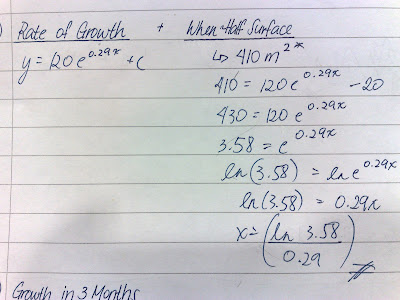 ) Rate of Growth + When Half Surface
y = 120e^0.29x + c
↳ 410 m^2*
410 = 120e^0.29x - 20
430 = 120e^0.29x
3.58 = e^0.29x
ln(3.58) = ln e^0.29x
ln(3.58) = 0.29x
x = (ln 3.58 / 0.29)
) Growth in 3 Months